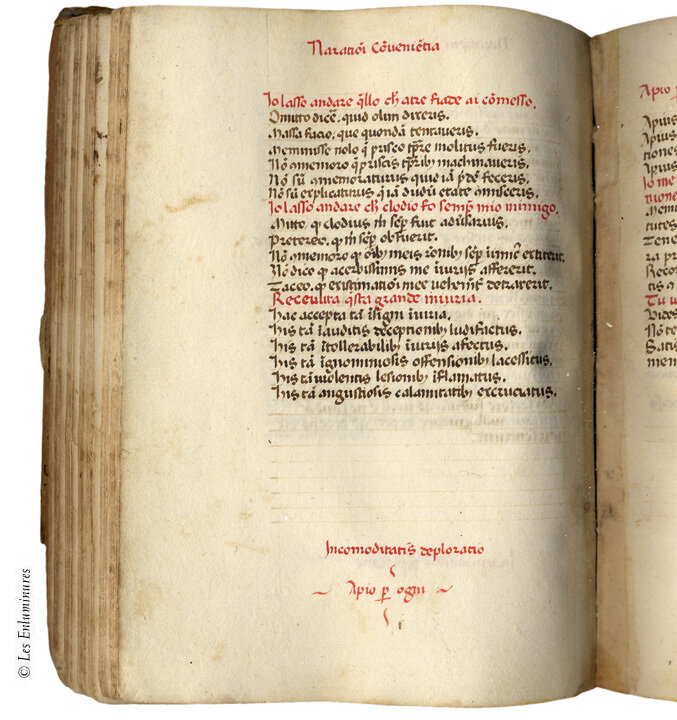 Naratiōi Cōveniētia
Io lasso andare q̄llo ch̄ atre frade ai cōmesso.
Omitto dice᷑, quid olim dixeris.
Massa facio, que quondā tentaveris.
Meminisse nolo q̄ prisco tp̄re molitus fueris.
Nō memoro q̄ priscis tp̄ribꝫ machinaveris.
Nō sū memoraturus quid iā p̄dē feceris.
Nō sū explicaturus q̄ iā dudū etate cōmisceris.
Io lasso andare ch̄ clodio fo semp̄ mio inimigo.
Mitto, ꝙ clodius m̄ sēp̄ fuit adūsarius.
Pretereo, ꝙ m̄ sēp̄ obfuerit.
Nō memoro ꝙ oībꝫ meis rōnibꝫ sēp̄ inimic̄ extiterit.
Nō dico ꝙ acerbissimis me iniurijs affecerit.
Taceo, ꝙ existimationi mee vehemēt̄ detraxerit.
Recevuta q̄sta grande iniuria.
Hac accepta tā īsigni iniuria.
His tā īauditis deceptionibꝫ ludifactus.
His tā ītollerabilibꝫ īiurijs afectus.
His tā īgnominiosis offensionibꝫ lacessitus.
His tā violentis lesionibꝫ īflamatus.
His tā angustiosis calamitatibꝫ excruciatus.
Incomoditatis deploratio
Apio ꝑ ogni
Apio
Apius
Apius
tiones
Apius
Io me
tutes
Tene
ra pr
Reco
Tu v
Vides
Nō te
Satis
men
© Les Enluminures